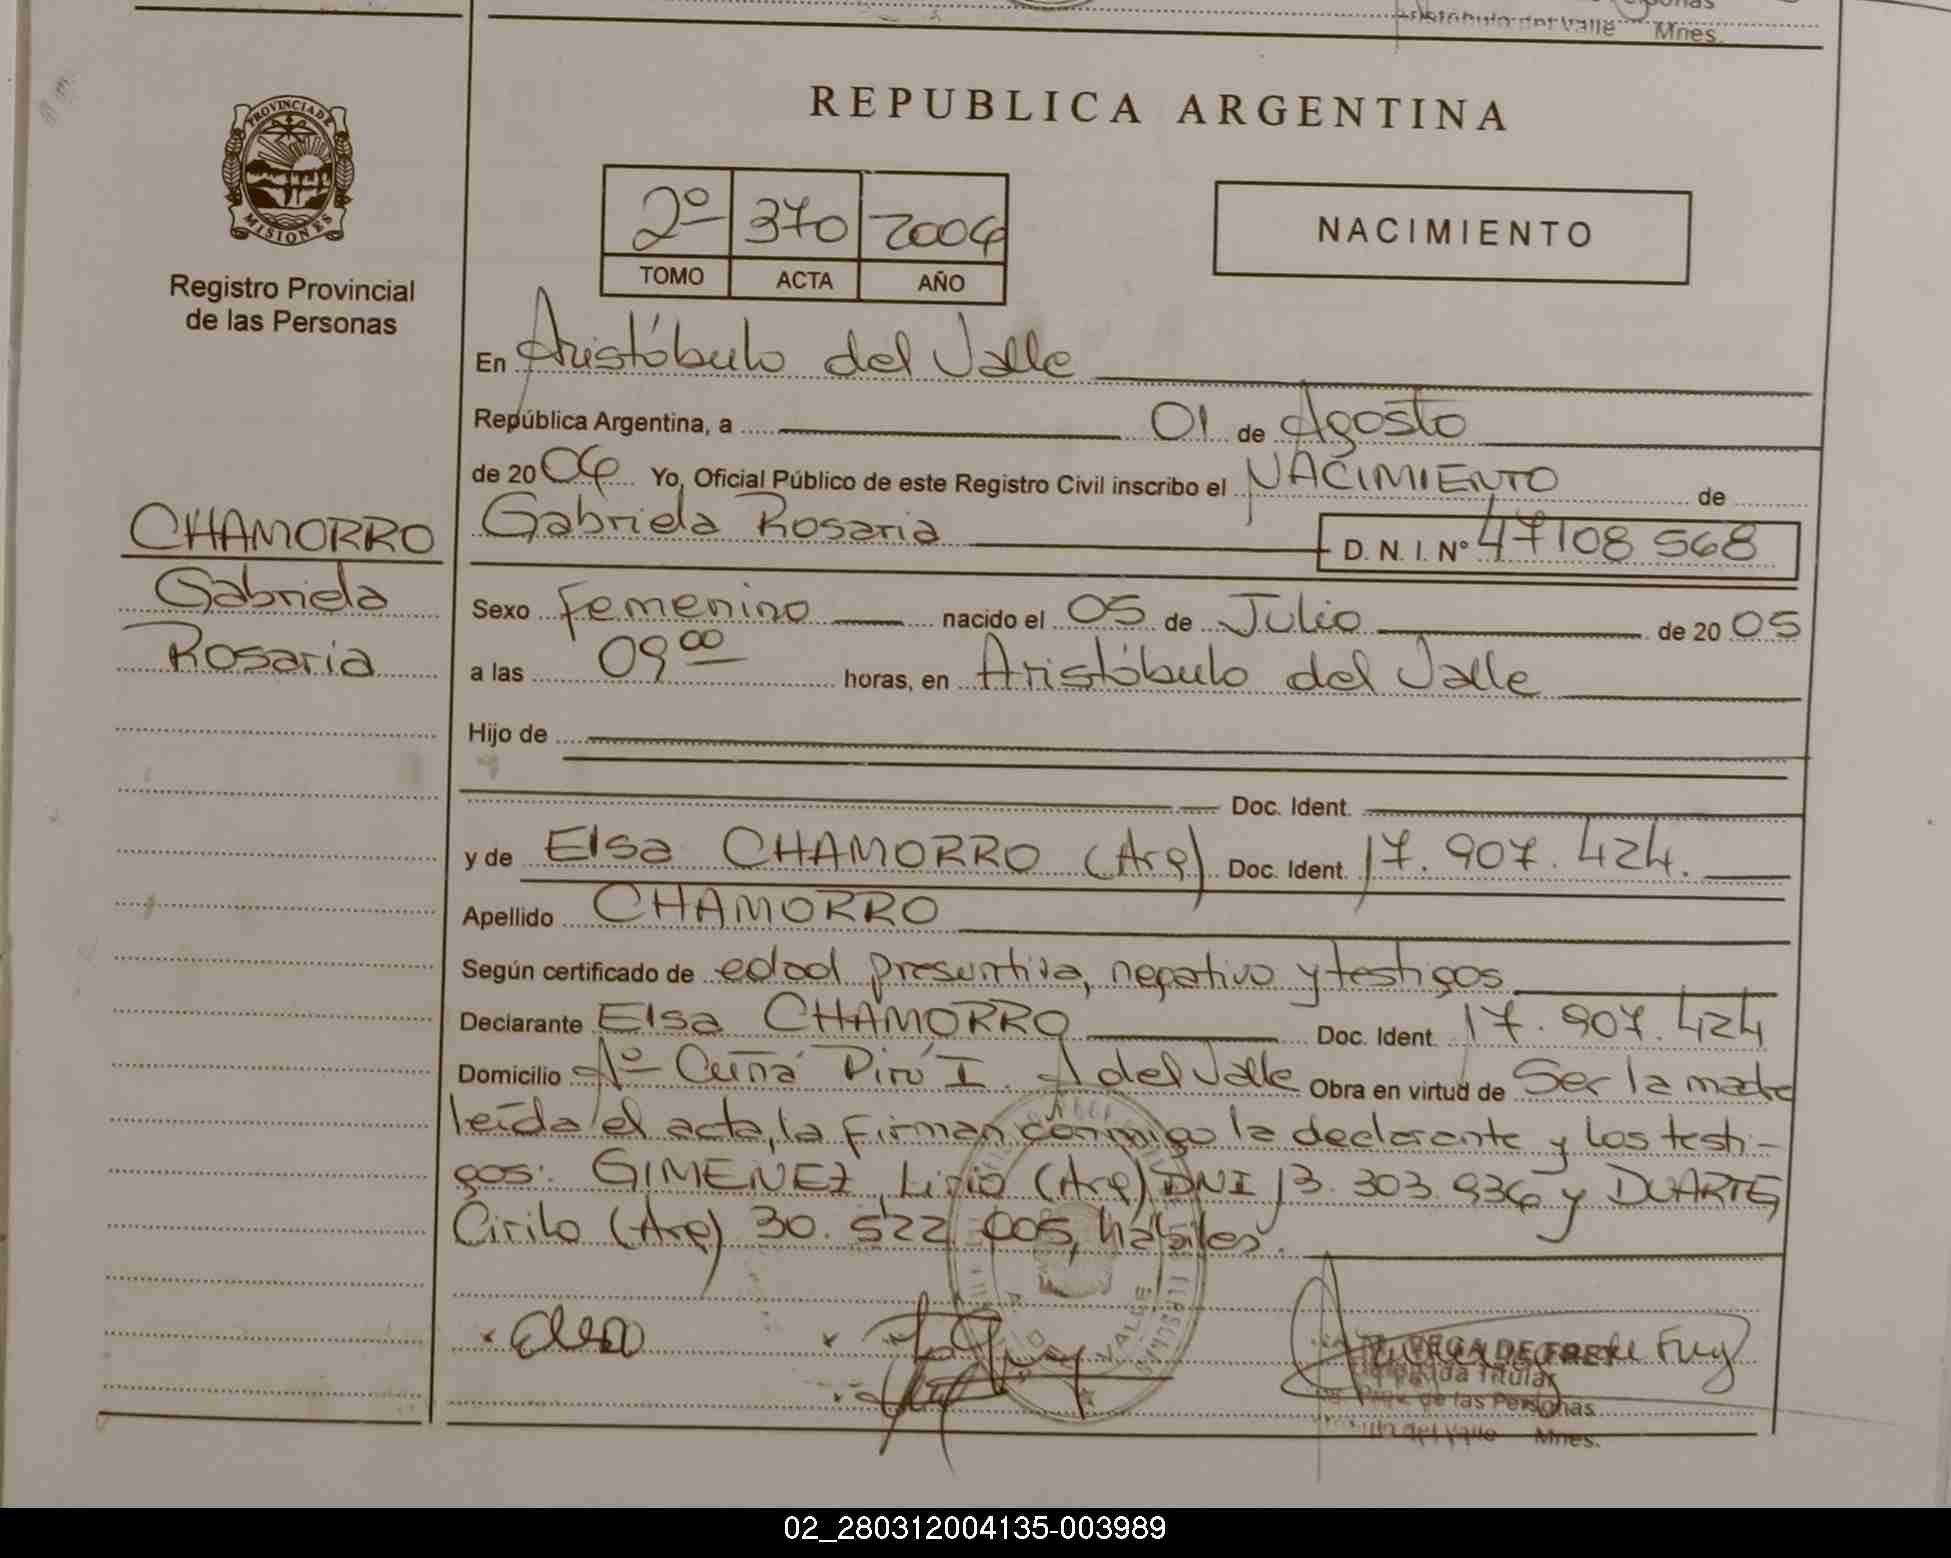 Aristóbulo del Valle Mnes.
REPUBLICA ARGENTINA
PROVINCIA DE
MISIONES
2º 370 2006
TOMO ACTA AÑO
NACIMIENTO
Registro Provincial
de las Personas
En Aristóbulo del Valle
República Argentina, a 01 de Agosto
de 20 06 Yo, Oficial Público de este Registro Civil inscribo el NACIMIENTO de
CHAMORRO
Gabriela
Rosaria
Gabriela Rosaria D. N. I. Nº 47108568
Sexo Femenino nacido el 05 de Julio de 20 05
a las 09 00 horas, en Aristóbulo del Valle
Hijo de
Doc. Ident.
y de Elsa CHAMORRO (Arg) Doc. Ident. 17.907.424.
Apellido CHAMORRO
Según certificado de edad presuntiva, negativo y testigos
Declarante Elsa CHAMORRO Doc. Ident. 17.907.424
Domicilio Aº Cuñá Pirú I. A del Valle Obra en virtud de Ser la madre
leída el acta, la firman conmigo la declarante y los testi-
gos: GIMENEZ, Lirio (Arg) DNI 13.303.936 y DUARTE,
Cirilo (Arg) 30.522.005, hábiles.
Elsa
VALLE
VEGA DE FREY
Titular
de las Personas
del Valle Mnes.
02_280312004135-003989